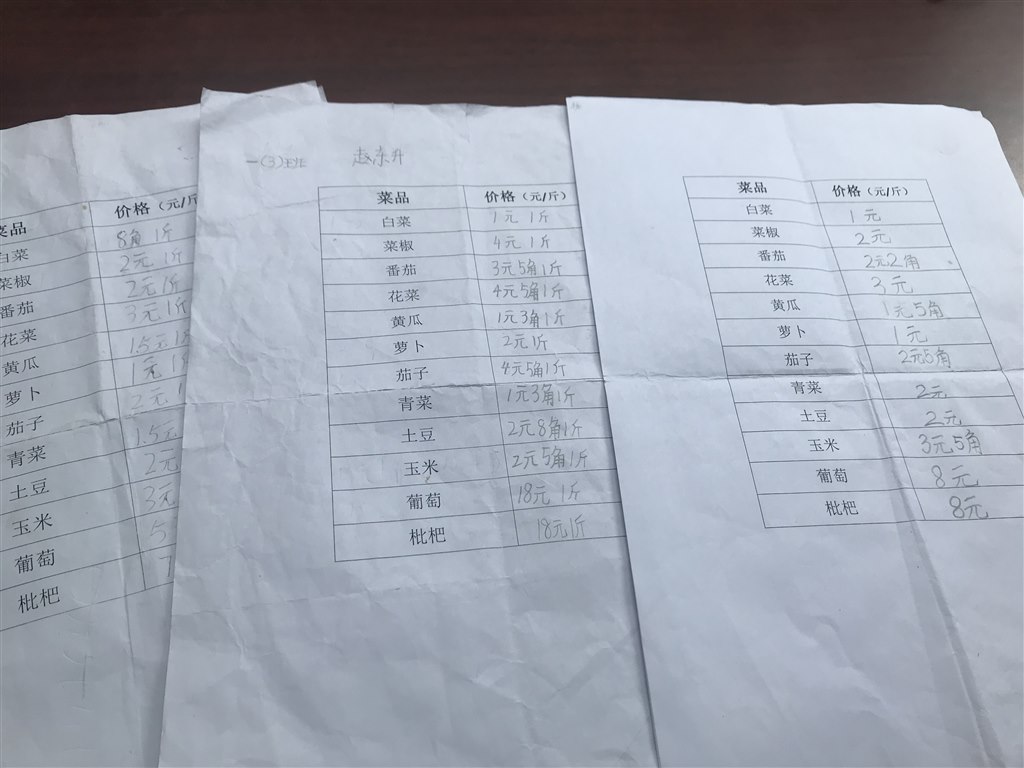 菜品 价格（元/斤）
白菜 8角 1斤
菜椒 2元 1斤
番茄 2元 1斤
花菜 3元 1斤
黄瓜 1.5元
萝卜 1元
茄子 2元
青菜 1.5元
土豆 2元
玉米 3元
葡萄 5
枇杷
一(3)班 赵东升
菜品 价格（元/斤）
白菜 1元 1斤
菜椒 4元 1斤
番茄 3元5角1斤
花菜 4元5角1斤
黄瓜 1元3角1斤
萝卜 2元1斤
茄子 4元5角1斤
青菜 1元3角1斤
土豆 2元8角1斤
玉米 2元5角1斤
葡萄 18元 1斤
枇杷 18元1斤
菜品 价格（元/斤）
白菜 1元
菜椒 2元
番茄 2元2角
花菜 3元
黄瓜 1元5角
萝卜 1元
茄子 2元5角
青菜 2元
土豆 2元
玉米 3元5角
葡萄 8元
枇杷 8元